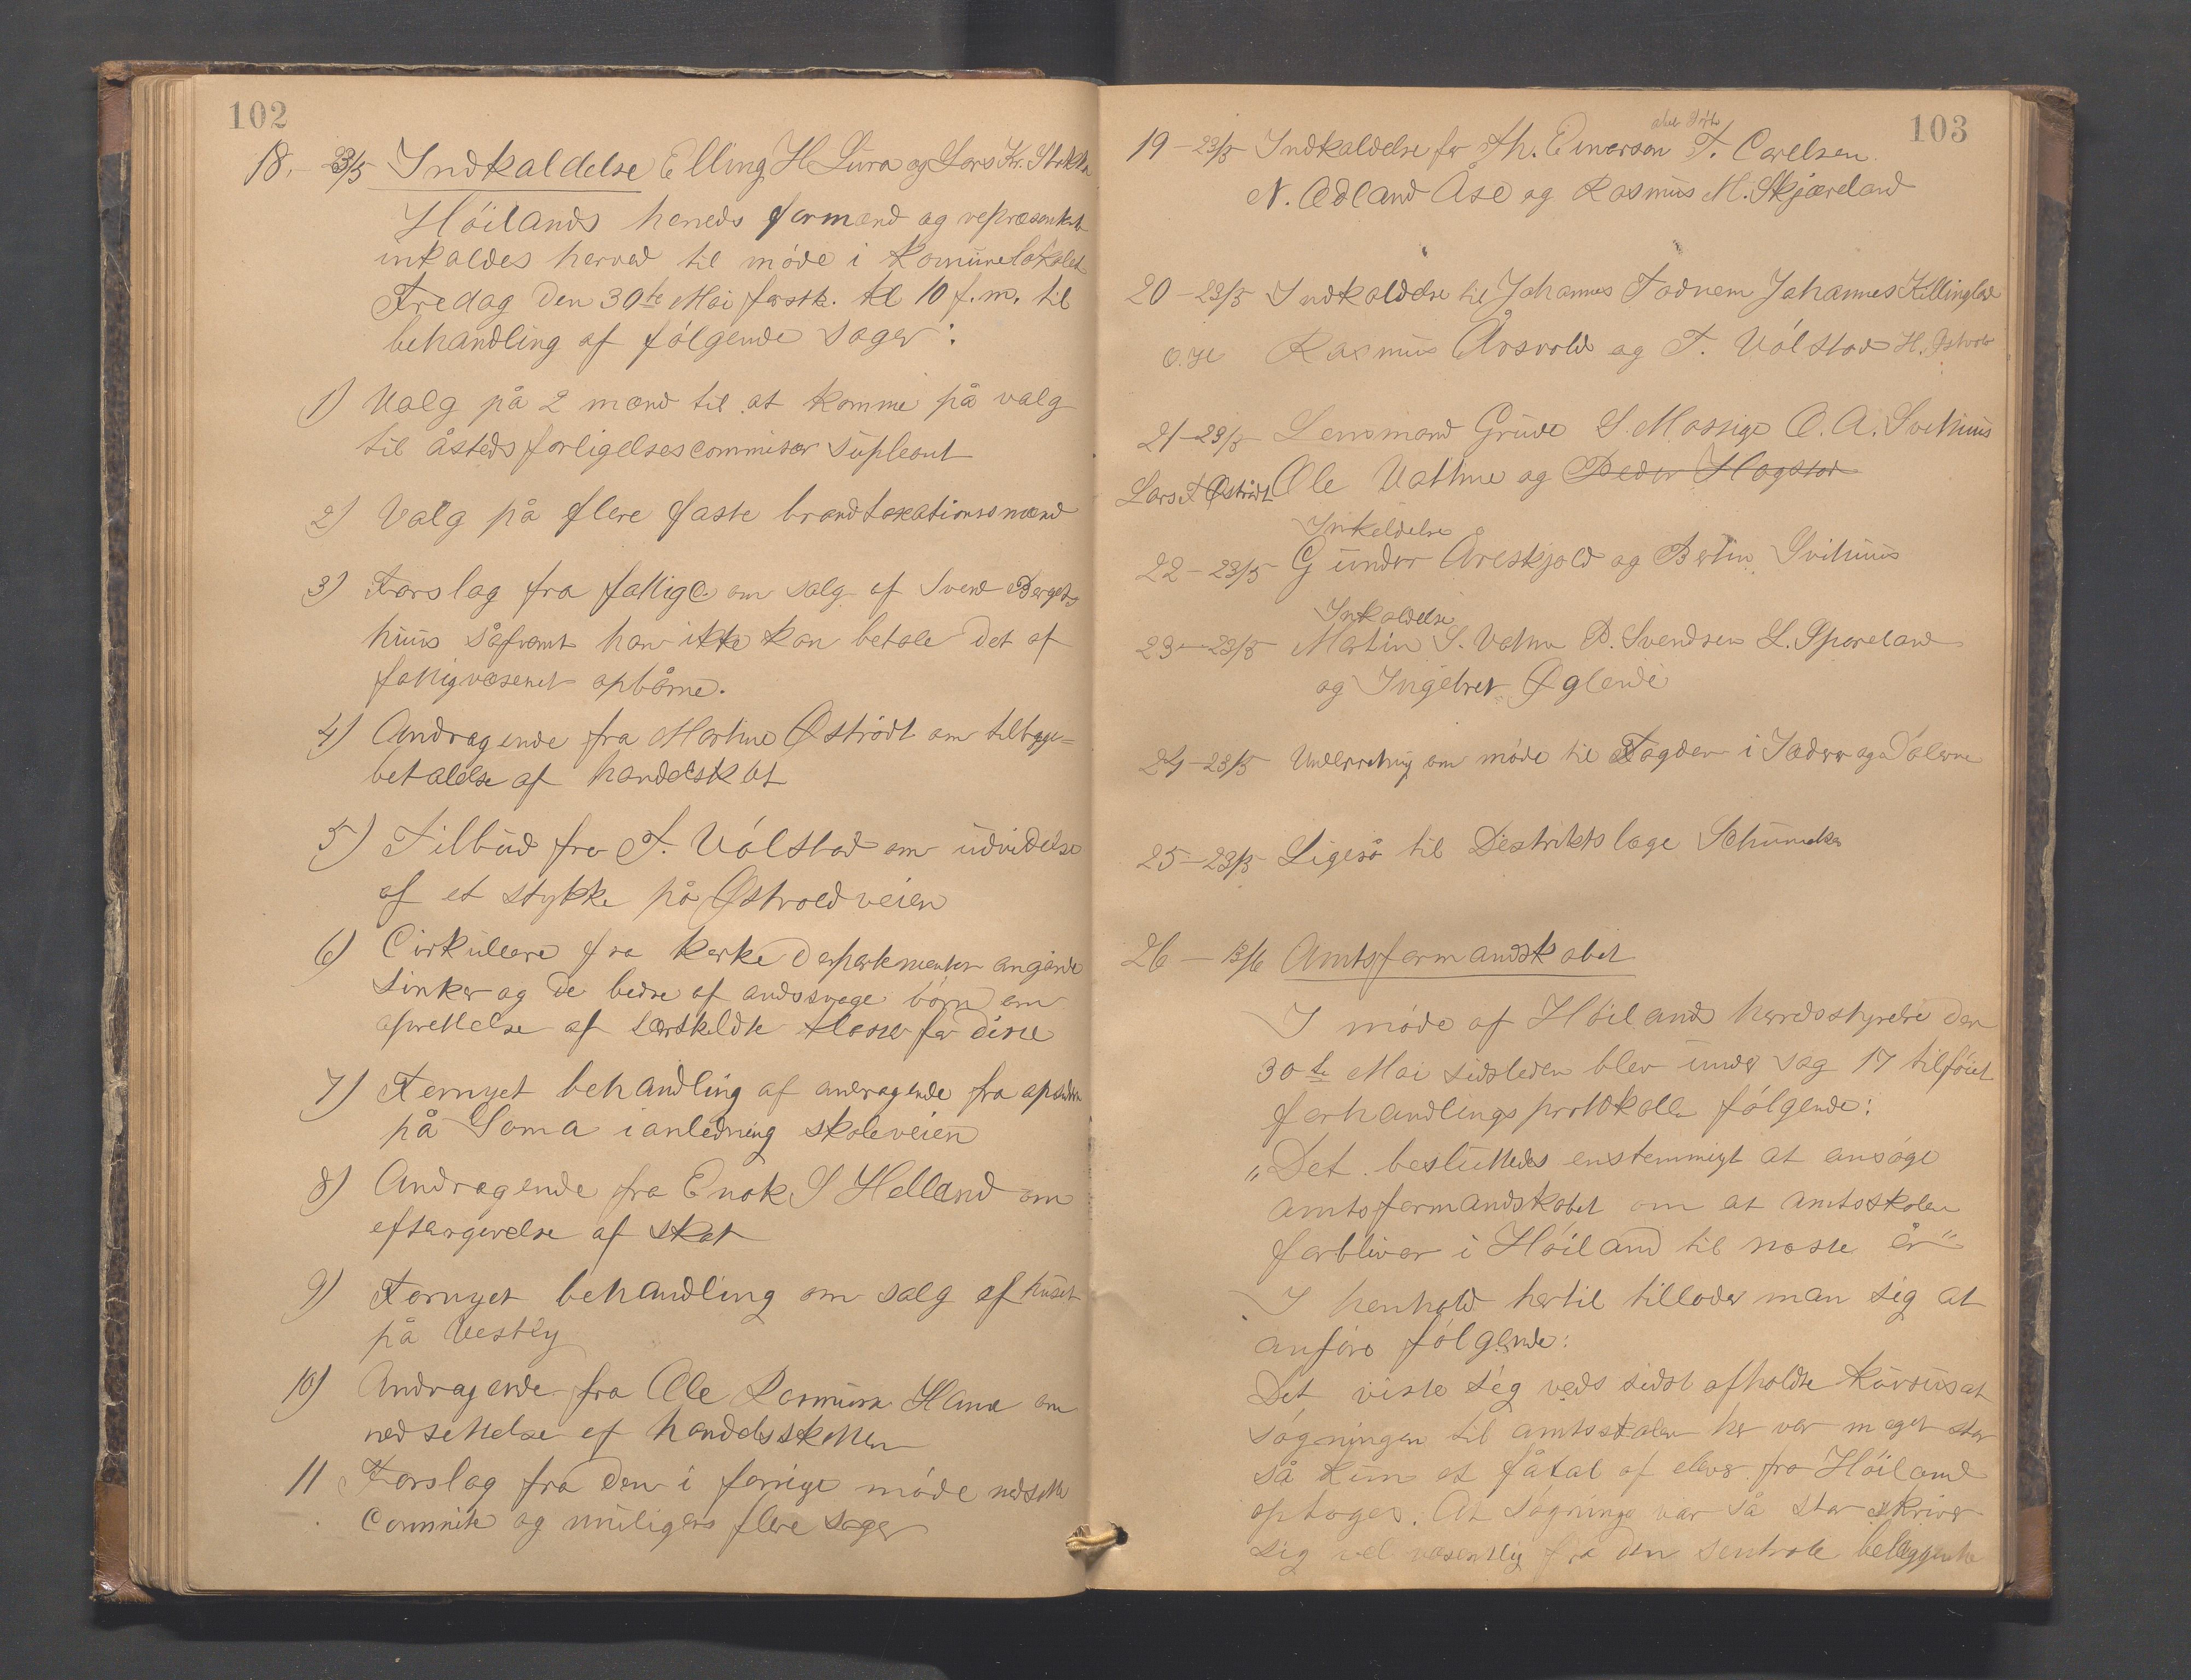 102
18. - 23/5 Indkaldelse Elling H Lura og Lars Kr.
Höilands hereds formænd og repræsentanter
inkaldes herved til möde i Komunelokalet
Fredag den 30te Mai förstk. kl 10 f.m. til
behandling af fölgende sager:
1) Valg på 2 mænd til at komme på valg
til åstedsforligelsescommisær supleant
2) Valg på flere faste brandtaxationsmænd
3) Forslag fra fattigc. om salg af Svend Bergets
huus såfremt han ikke kan betale det af
fattigvæsenet opbårne.
4) Andragende fra Martine Øströdt om tilbage=
betalelse af handelskat
5) Tilbud fra T. Vólstad om udvidelse
af et stykke på Østvoldveien
6) Cirkulære fra kerke departementet angånde
sinker og de bedre af andssvage börn om
oprettelse af særskildte klasser for disse
7) Fornyet behandling af andragende fra opsidn
på Soma ianledning skoleveien
8) Andragende fra Enok S Helland om
eftergivelse af skat
9) Fornyet behandling om salg af huset
på Vestly
10) Andragende fra Ole Rasmusen Hana om
nedsettelse af handelsskatten
11 Forslag fra den i forrige möde nedsatte
Commite og muligens flere sager
103
19 - 23/5 Indkaldelse for Th. Einarsen T. Carelsen
N. Ødland Åse og Rasmus M. Skjæveland
20 - 23/5 Indkaldelse til Johannes Fodnem Johannes Kellingland
Rasmus Årsvold og T. Vólstad H. Østvold
21 - 23/5 Lensmand Grude S. Mossige O. A. Svihuus
Lars T Østródt Ole Vathne og Peder Hogstad
Inkaldelse
22 - 23/5 Gunder Åreskjold og Bertin Svihuus
Inkaldelse
23 - 23/5 Martin S. Vathne B. Svendsen L. Spaneland
og Ingebret Øglende
24 - 23/5 Underretning om möde til Fogden i Jæderen og Dalerne
25 - 23/5 Ligeså til Distriktslæge Schumeker
26 - 13/6 Amtsformandskabet
I möde af Höilands herredsstyrelse den
30te Mai sidsleden blev under sag 17 tilföiet
forhandlingsprotokollen fölgende:
"Det besluttedes enstemmigt at ansöge
Amtsformandskabet om at amtsskolen
forbliver i Höiland til næste år"
I henhold hertil tillader man sig at
anföre fölgende:
Det viste sig veds sidst afholdte kursus at
sögningen til amtsskolen her var meget stor
så kun et fåtal af elever fra Höiland
optoges. At sögninge var så stor skriver
sig vel væsentlig fra den sentrale beliggenhe